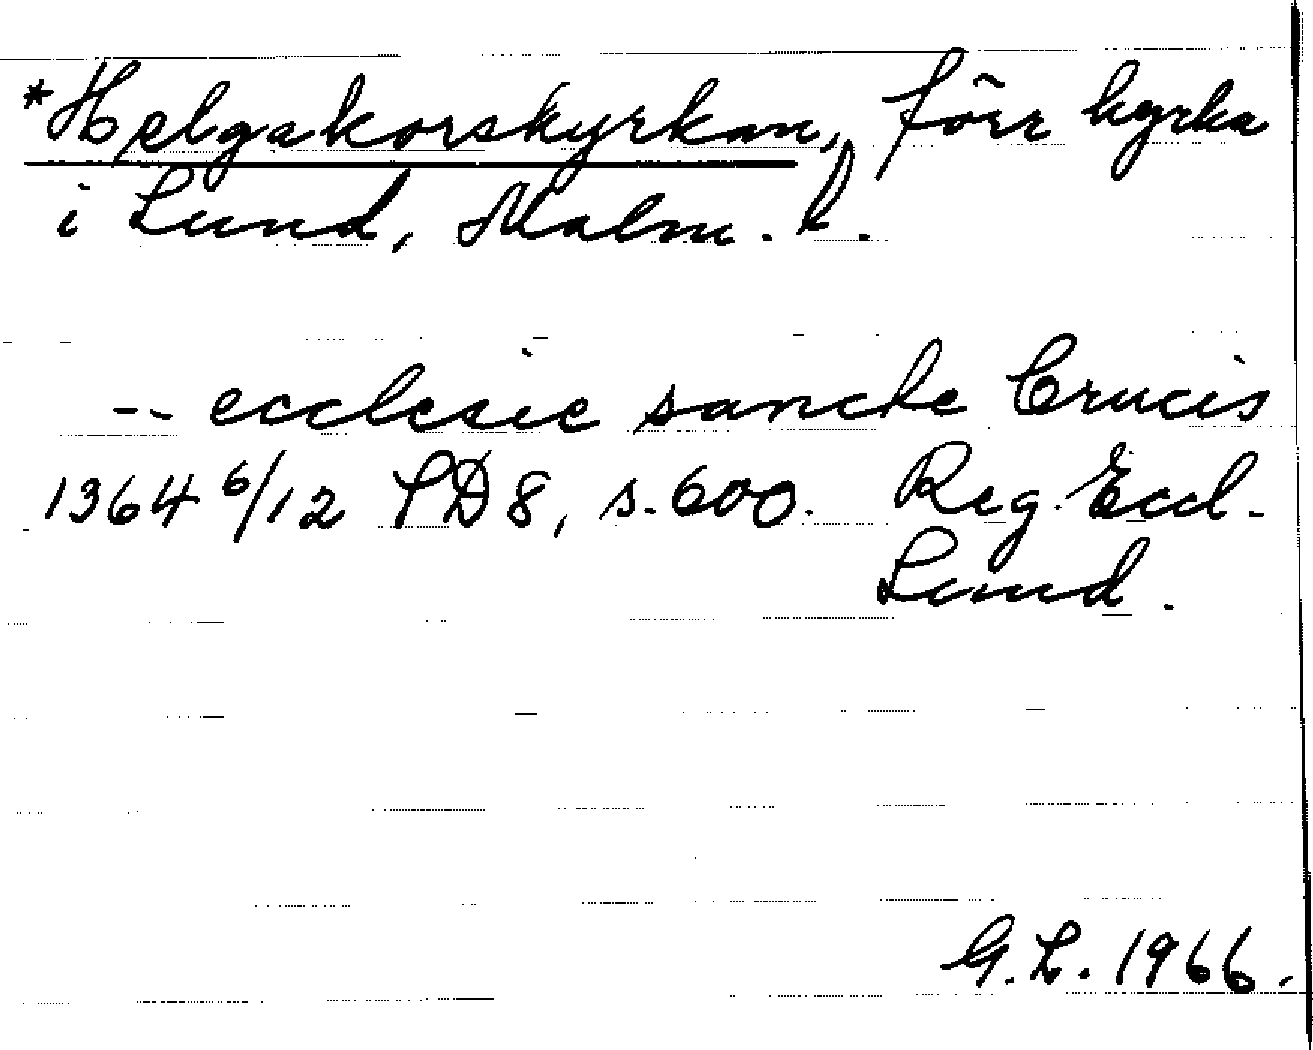 *Helgakorskyrkan, förr kyrka
i Lund, Malm. l.
-- ecclesie sancte Crucis
1364 6/12 SD 8, s. 600. Reg. Eccl.
Lund.
G. L. 1966.